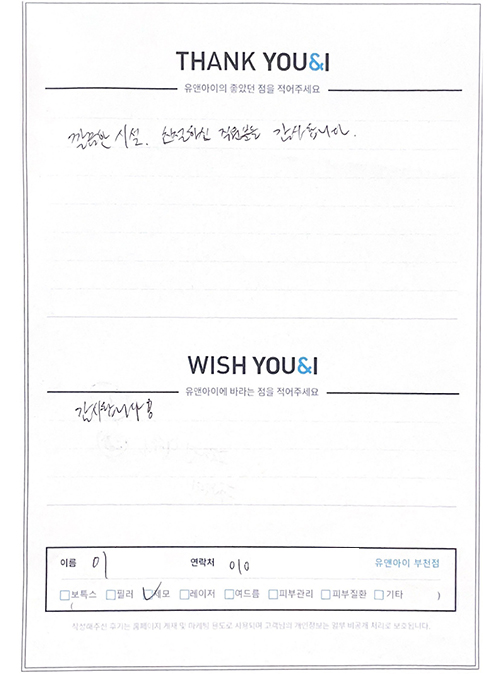 THANK YOU&I
유앤아이의 좋았던 점을 적어주세요
깔끔한 시설. 친절하신 직원분들 감사합니다.
WISH YOU&I
유앤아이에 바라는 점을 적어주세요
감사합니다용
이름 이 연락처 010 유앤아이 부천점
보톡스 필러 제모 레이저 여드름 피부관리 피부질환 기타 ( )
작성해주신 후기는 홈페이지 게재 및 마케팅 용도로 사용되며 고객님의 개인정보는 일부 비공개 처리로 보호됩니다.